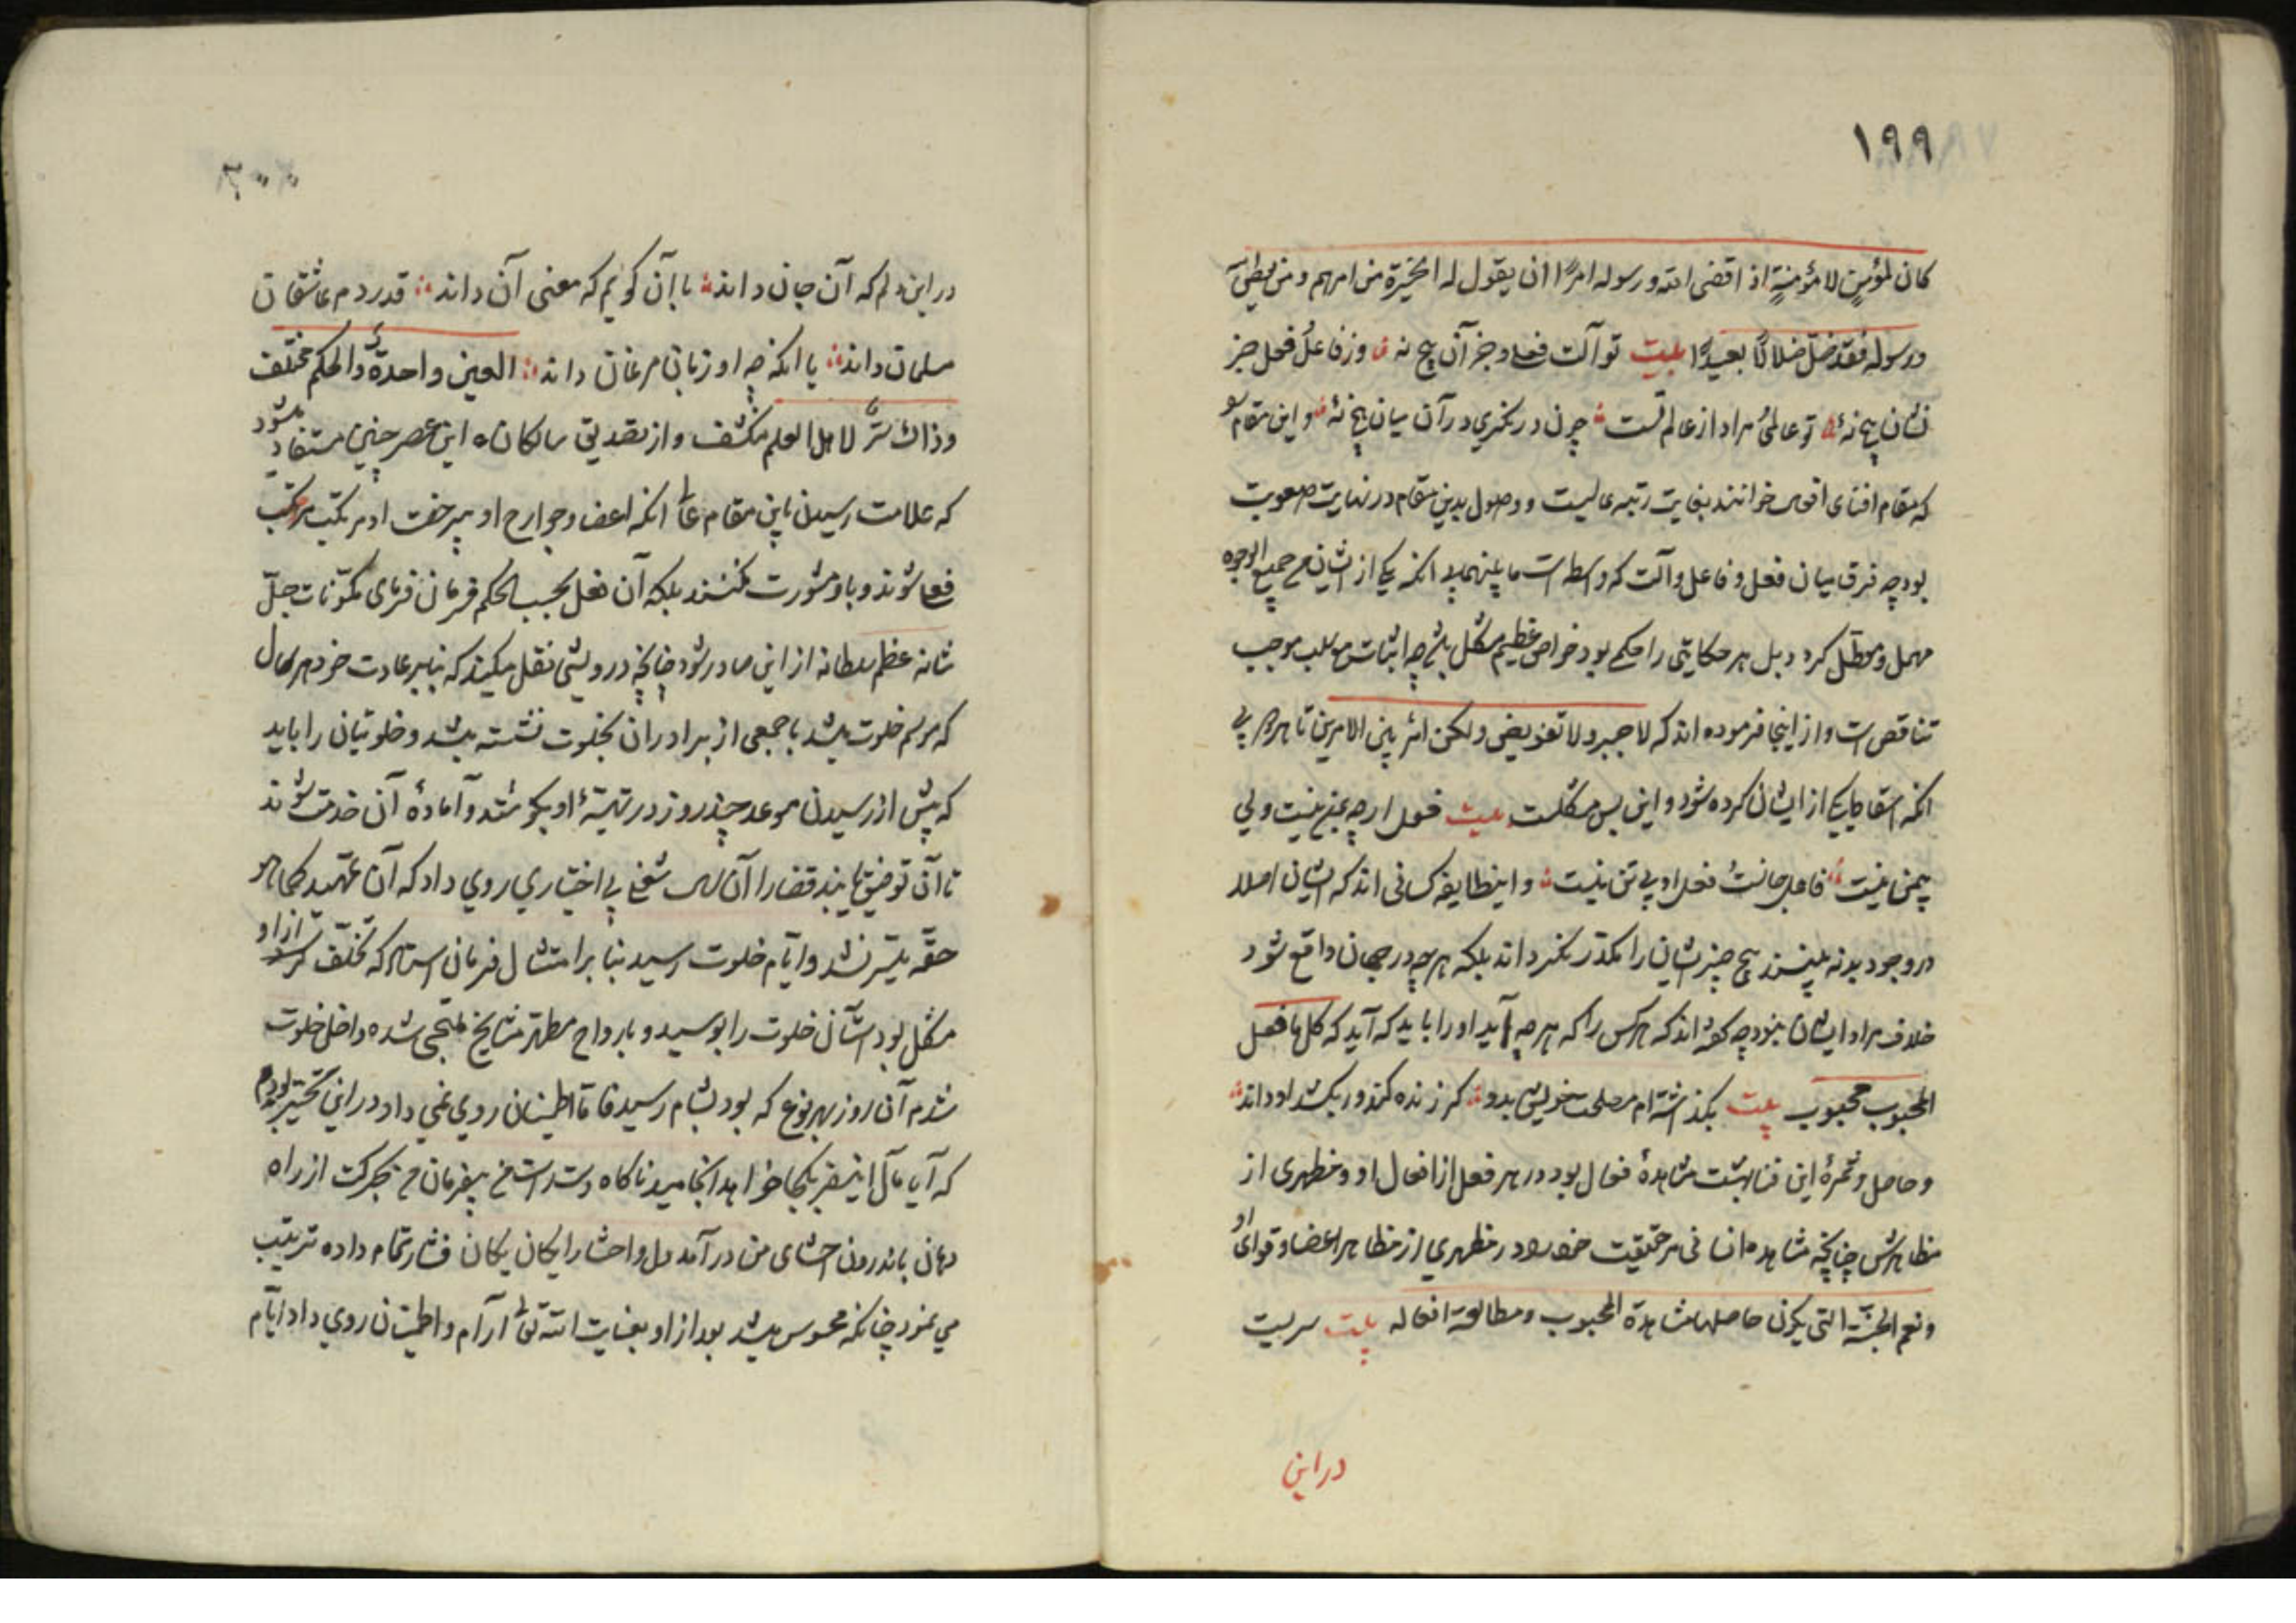 ۱۹۹
كان لمؤمنٍ لا مؤمنةٍ اذا قضى الله ورسوله امرًا ان يقول له الخيرة من امرهم ومن يعطى
ورسوله فقد ضلّ ضلالًا بعيدًا بیت تو آلت فعلی و جز آن هیچ نهٔ وز فاعل فعل جز
نشان هیچ نهٔ تو عالمی مراد از عالم تست چون درنگری در آن میان هیچ نهٔ و این مقام
که مقام افنای اقوی خوانند بغایت رتبه عالیست و وصول بدین مقام در نهایت صعوبت
بود چه فرق میان فعل و فاعل و آلت که واسطه است ما بینهما بی انکه یکی از ایشان من جمیع الوجوه
مهمل و معطّل کرد و بل هر حکایتی را حکمی بود خواص عظیم مشکل باشد چه اثبات سلب موجب
تناقص است و از اینجا فرموده اند که لا جبر ولا تفویض ولكن امر بین الامرین تا هر بی
انکه اسقاط یکی از ایشان کرده شود و این بس مشکلست بیت فعل ار چه بمن نیست ولی
بیمن نیست فاعل جانست فعل او بی تن نیست و اینطایفه کسانی اند که ایشان اصلا
در وجود بد نه بینند هیچ چیز ایشان را مکدّر نکرداند بلکه هر چه در جهان واقع شود
خلاف مراد ایشان نبود چه کفته اند که هر کس را که هر چه آید او را باید که آید که كل ما فعل
المحبوب محبوب بیت بکذاشته ام مصلحت خویش بدو کر زنده کند ور بکشد او داند
و حاصل و ثمرهٔ این فنا بهشت مشاهدهٔ فعال بود در هر فعل از افعال او و مظهری از
مظاهرش چنانچه مشاهده انسانی مر حقیقت خود را در مظهری از مظاهر اعضا و قوای او
ونعم الجنّة التی یکون حاصلها مشاهدة المحبوب ومطالعة افعاله بیت سریست
در این
۲۰۰
در این دلم که آن جان داند با آن کویم که معنی آن داند قدر دم عاشقان
سلمان داند یا انکه چو او زبان مرغان داند العین واحدةٌ والحکم مختلف
وذاك سرٌّ لاهل العلم منکشف و از بعد یتی سالکان این عصر چنین مستفاد میشود
که علامت رسیدن باین مقام عالی انکه اعضا و جوارح او بیرخصت او مرتکب هر
فعل شوند و با او مشورت نکنند بلکه آن فعل بحسب الحکم فرمان فرمای مکوّنات جلّ
شانه عظم سلطانه از این صادر شود چنانچه درویشی نقل میکند که بنا بر عادت خود هر سال
که موسم خلوت میشد با جمعی از برادران بخلوت نشسته میشد و خلوتیان را باید
که پیش از رسیدن موعد چند روز در تهیّهٔ او بکوشند و آمادهٔ آن خدمت شوند
تا آن توفیق یابند قضا را آن سال شغلی بی اختیاری روی داد که آن تمهید کما هو
حقّه میسّر نشد و ایّام خلوت رسید بنا بر امتثال فرمان استاد که تخلّف از او
مشکل بود آستان خلوت را بوسید و بارواح مطهّر مشایخ ملتجی شده داخل خلوت
شدم آن روز بهر نوع که بود بشام رسید قاقا اطمینان روی نمی داد در این تحیّر بودم
که آیا مآل اینسفر بکجا خواهد انجامید ناکاه دست راست من بیفرمان من بحرکت از راه
دهان باندرون احشای من در آمد دل و احشا را یکان یکان فشار تمام داده ترتیب
می نمود چنانکه محسوس میشد بعد از او بعنایت الله تعالی آرام و اطمینان روی داد ایّام